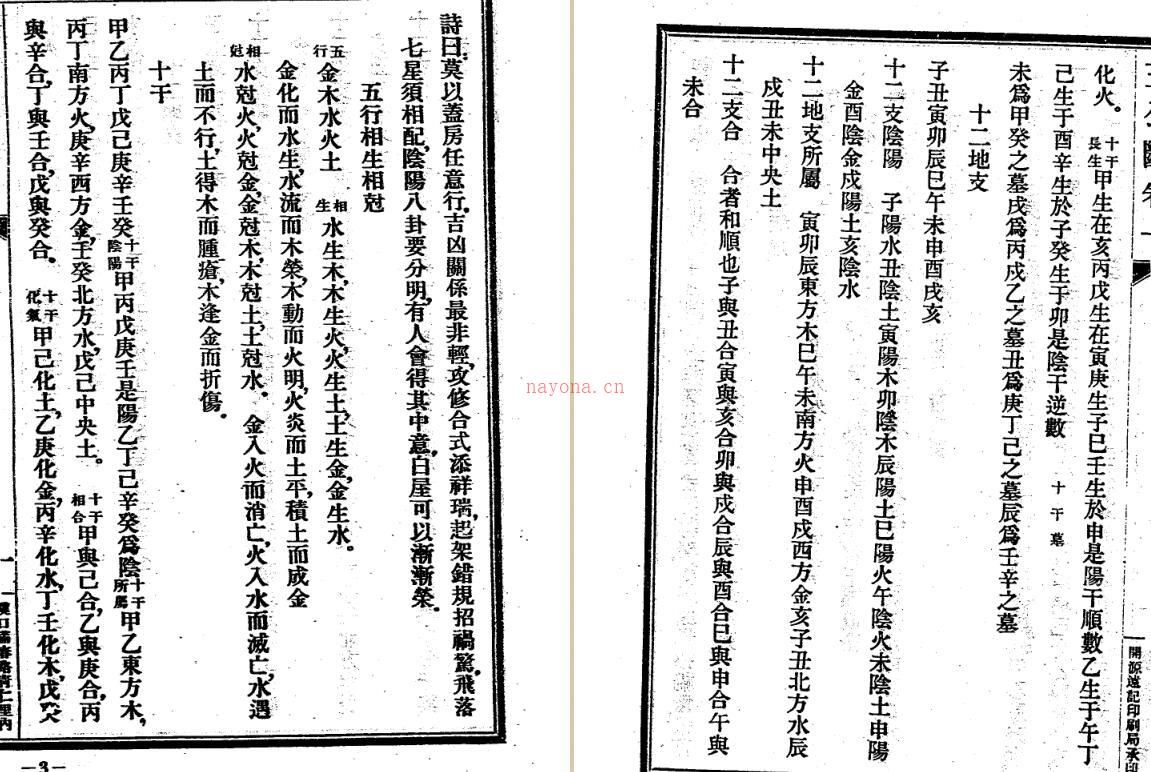 詩曰。莫以蓋房任意行。吉凶關係最非輕。攻修合式添祥瑞。起架錯規招禍縈。飛落
七星須相配。陰陽八卦要分明。有人會得其中意。白屋可以漸漸榮。
五行相生相尅
五行 金木水火土 相生 水生木。木生火。火生土。土生金。金生水。
金化而水生。水流而木榮。木動而火明。火炎而土平。積土而成金
相尅 水尅火。火尅金。金尅木。木尅土。土尅水。 金入火而消亡。火入水而滅亡。水遇
土而不行。土得木而腫瘡。木逢金而折傷。
十干
甲乙丙丁戊己庚辛壬癸 十干陰陽 甲丙戊庚壬是陽乙丁己辛癸爲陰 十干所屬 甲乙東方木。
丙丁南方火。庚辛西方金。壬癸北方水。戊己中央土。 十干相合 甲與己合。乙與庚合。丙
與辛合。丁與壬合。戊與癸合。 十干化氣 甲己化土。乙庚化金。丙辛化水。丁壬化木。戊癸
—3—
化火。 十干長生 甲生在亥丙戊生在寅庚生子巳壬生於申是陽干順數乙生于午丁
己生于酉辛生於子癸生于卯是陰干逆數 十干墓
未爲甲癸之墓戌爲丙戊乙之墓丑爲庚丁己之墓辰爲壬辛之墓
十二地支
子丑寅卯辰巳午未申酉戌亥
十二支陰陽 子陽水丑陰土寅陽木卯陰木辰陽土巳陽火午陰火未陰土申陽
金酉陰金戌陽土亥陰水
十二地支所屬 寅卯辰東方木巳午未南方火申酉戌西方金亥子丑北方水辰
戌丑未中央土
十二支合 合者和順也子與丑合寅與亥合卯與戌合辰與酉合巳與申合午與
未合
開源遠記印刷局承印
nayona.cn